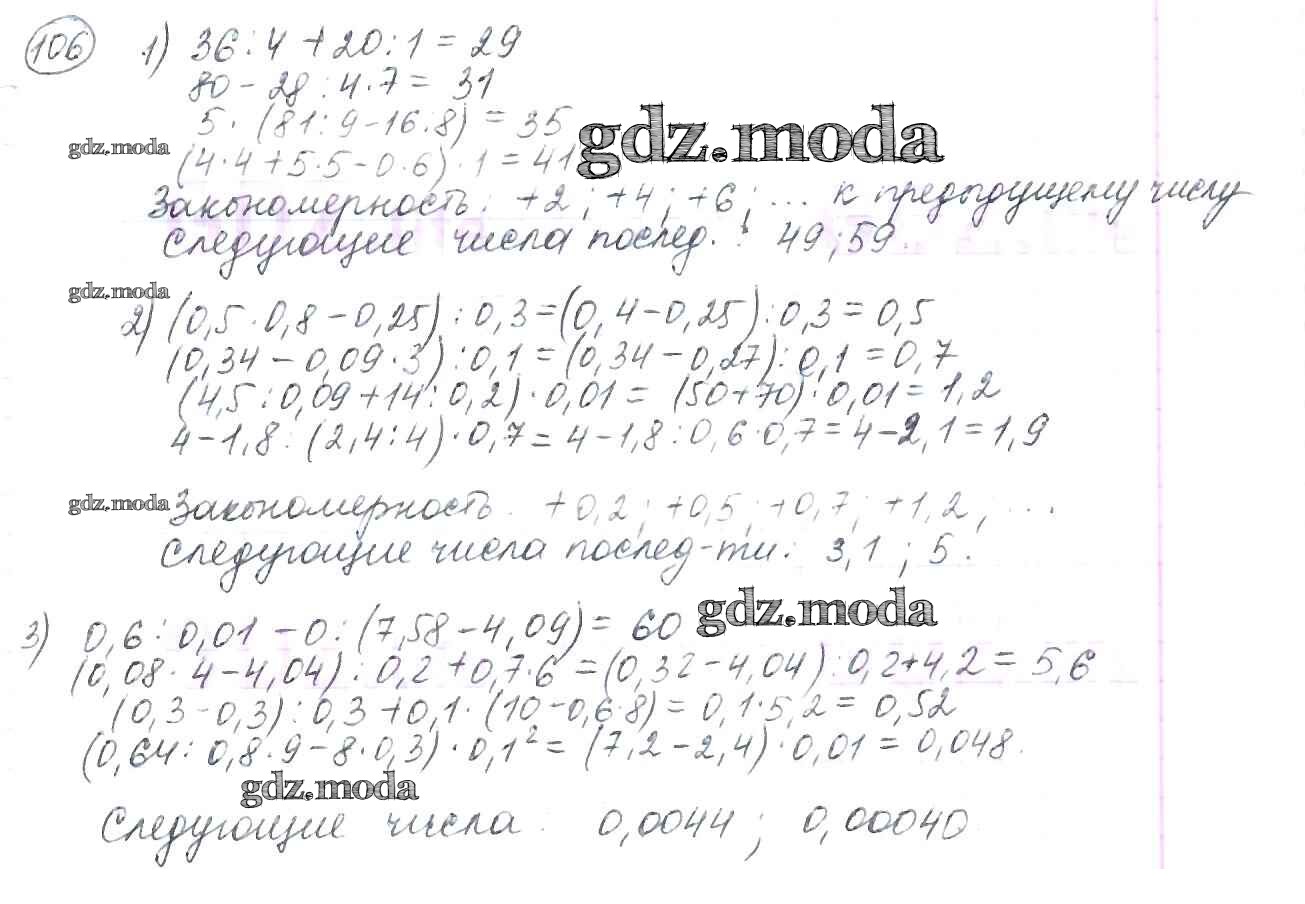 106 1) 36 : 4 + 20 : 1 = 29
80 - 28 : 4 · 7 = 31
5 · (81 : 9 - 16 : 8) = 35
gdz.moda
gdz.moda
(4 · 4 + 5 · 5 - 0 · 6) · 1 = 41
Закономерность: +2 ; +4 ; +6 ; ... к предыдущему числу
Следующие числа послед. : 49 ; 59.
gdz.moda
2) (0,5 · 0,8 - 0,25) : 0,3 = (0,4 - 0,25) : 0,3 = 0,5
(0,34 - 0,09 · 3) : 0,1 = (0,34 - 0,27) : 0,1 = 0,7
(4,5 : 0,09 + 14 : 0,2) · 0,01 = (50 + 70) · 0,01 = 1,2
4 - 1,8 : (2,4 : 4) · 0,7 = 4 - 1,8 : 0,6 · 0,7 = 4 - 2,1 = 1,9
gdz.moda
Закономерность. +0,2 ; +0,5 ; +0,7 ; +1,2 ; ...
Следующие числа послед-ти: 3,1 ; 5.
gdz.moda
3) 0,6 : 0,01 - 0 : (7,58 - 4,09) = 60
(0,08 · 4 - 4,04) : 0,2 + 0,7 · 6 = (0,32 - 4,04) : 0,2 + 4,2 = 5,6
(0,3 - 0,3) : 0,3 + 0,1 · (10 - 0,6 · 8) = 0,1 · 5,2 = 0,52
(0,64 : 0,8 · 9 - 8 · 0,3) · 0,1² = (7,2 - 2,4) · 0,01 = 0,048.
gdz.moda
Следующие числа : 0,0044 ; 0,00040